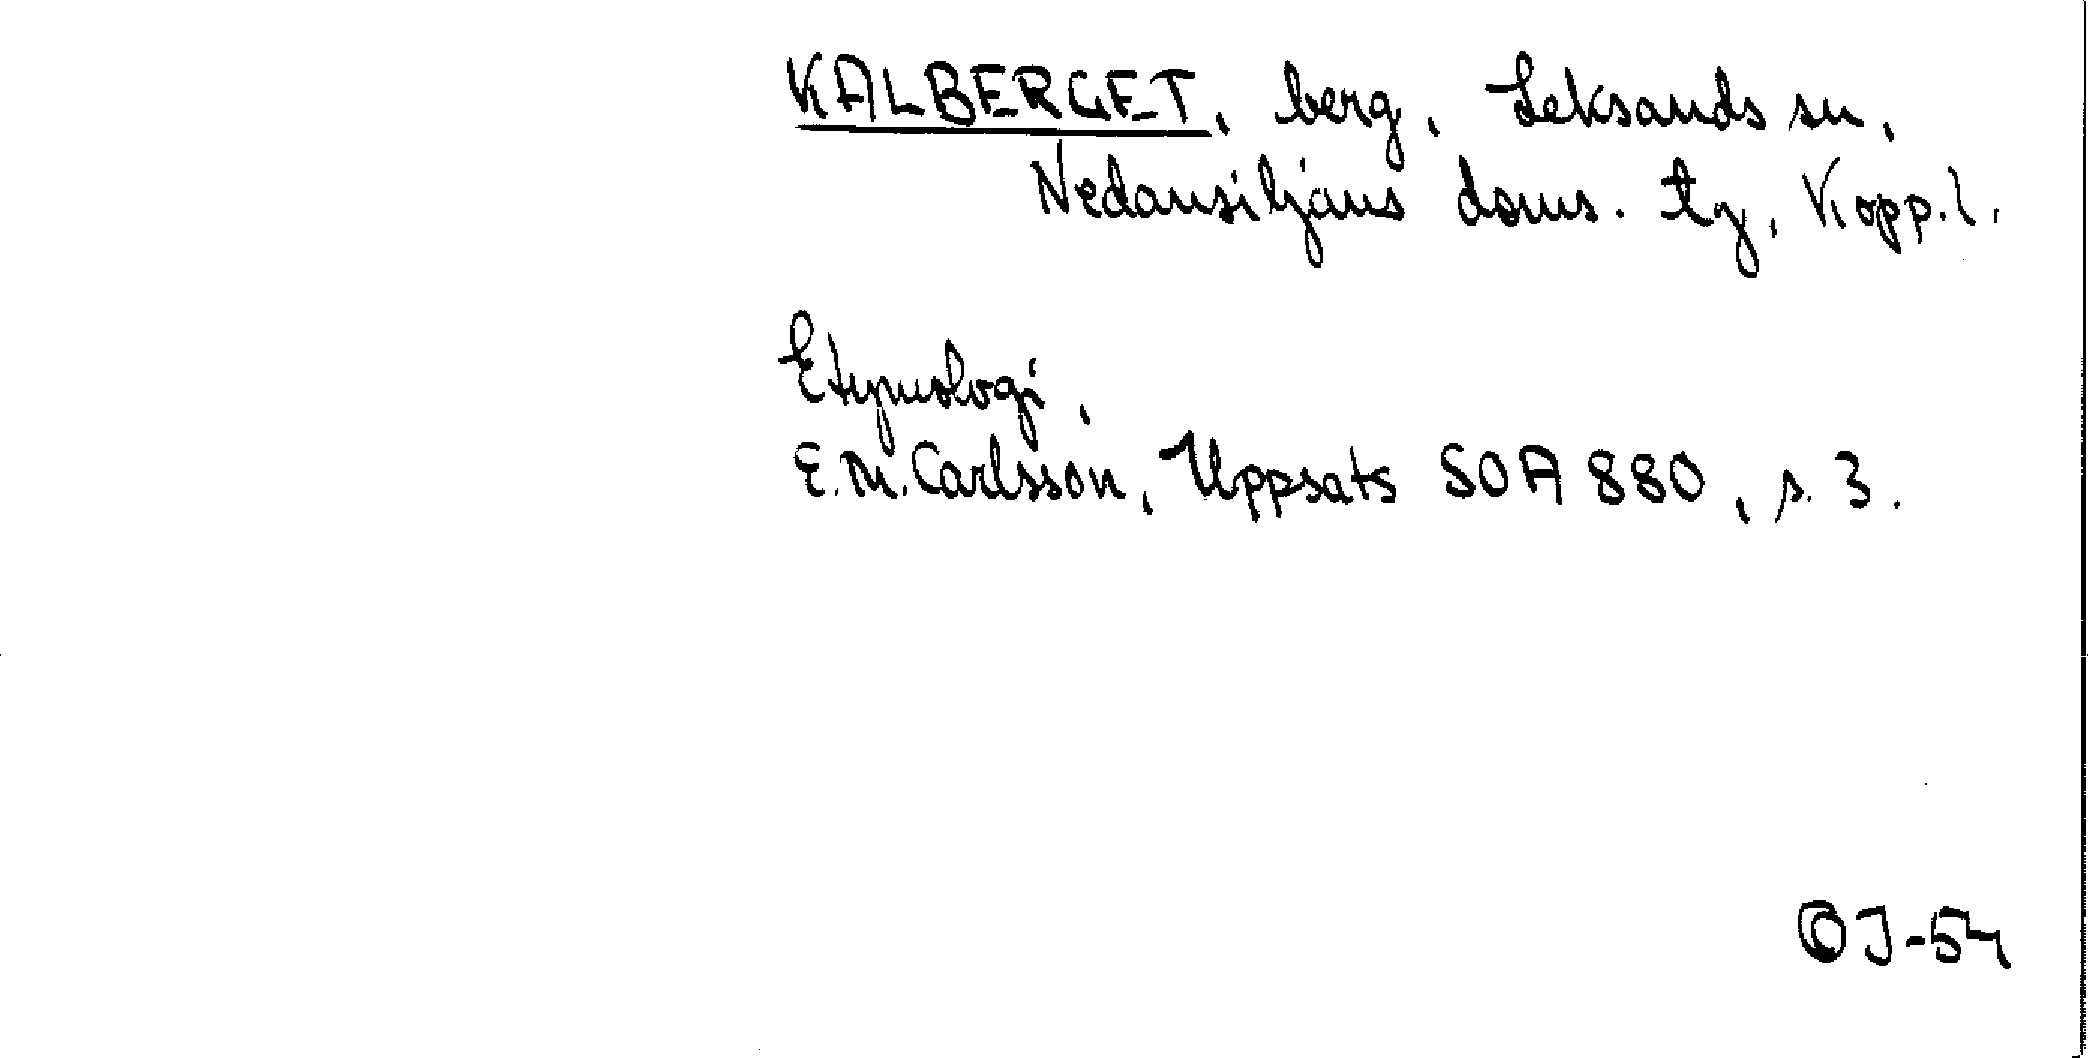 KALBERGET, berg, Leksands sn,
Nedansiljans doms. tg, Kopp.l.
Etymologi,
E.M. Carlsson, Uppsats SOA 880, s. 3.
OJ-54